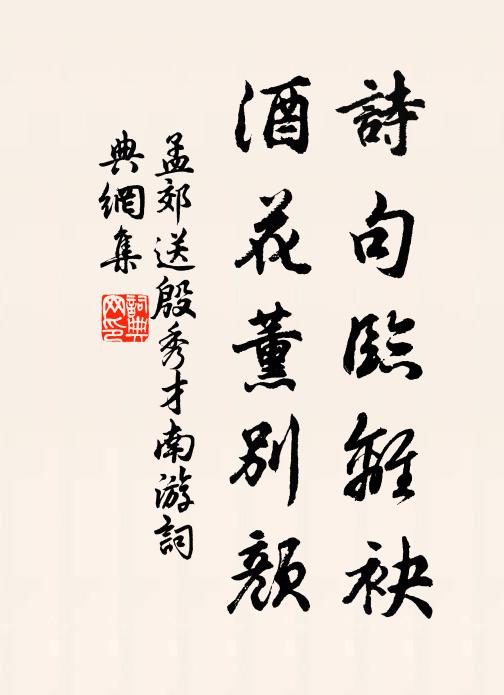 詩句臨離袂
酒花薰別顏
孟郊送殷秀才南游詞
典網集
詞典網印